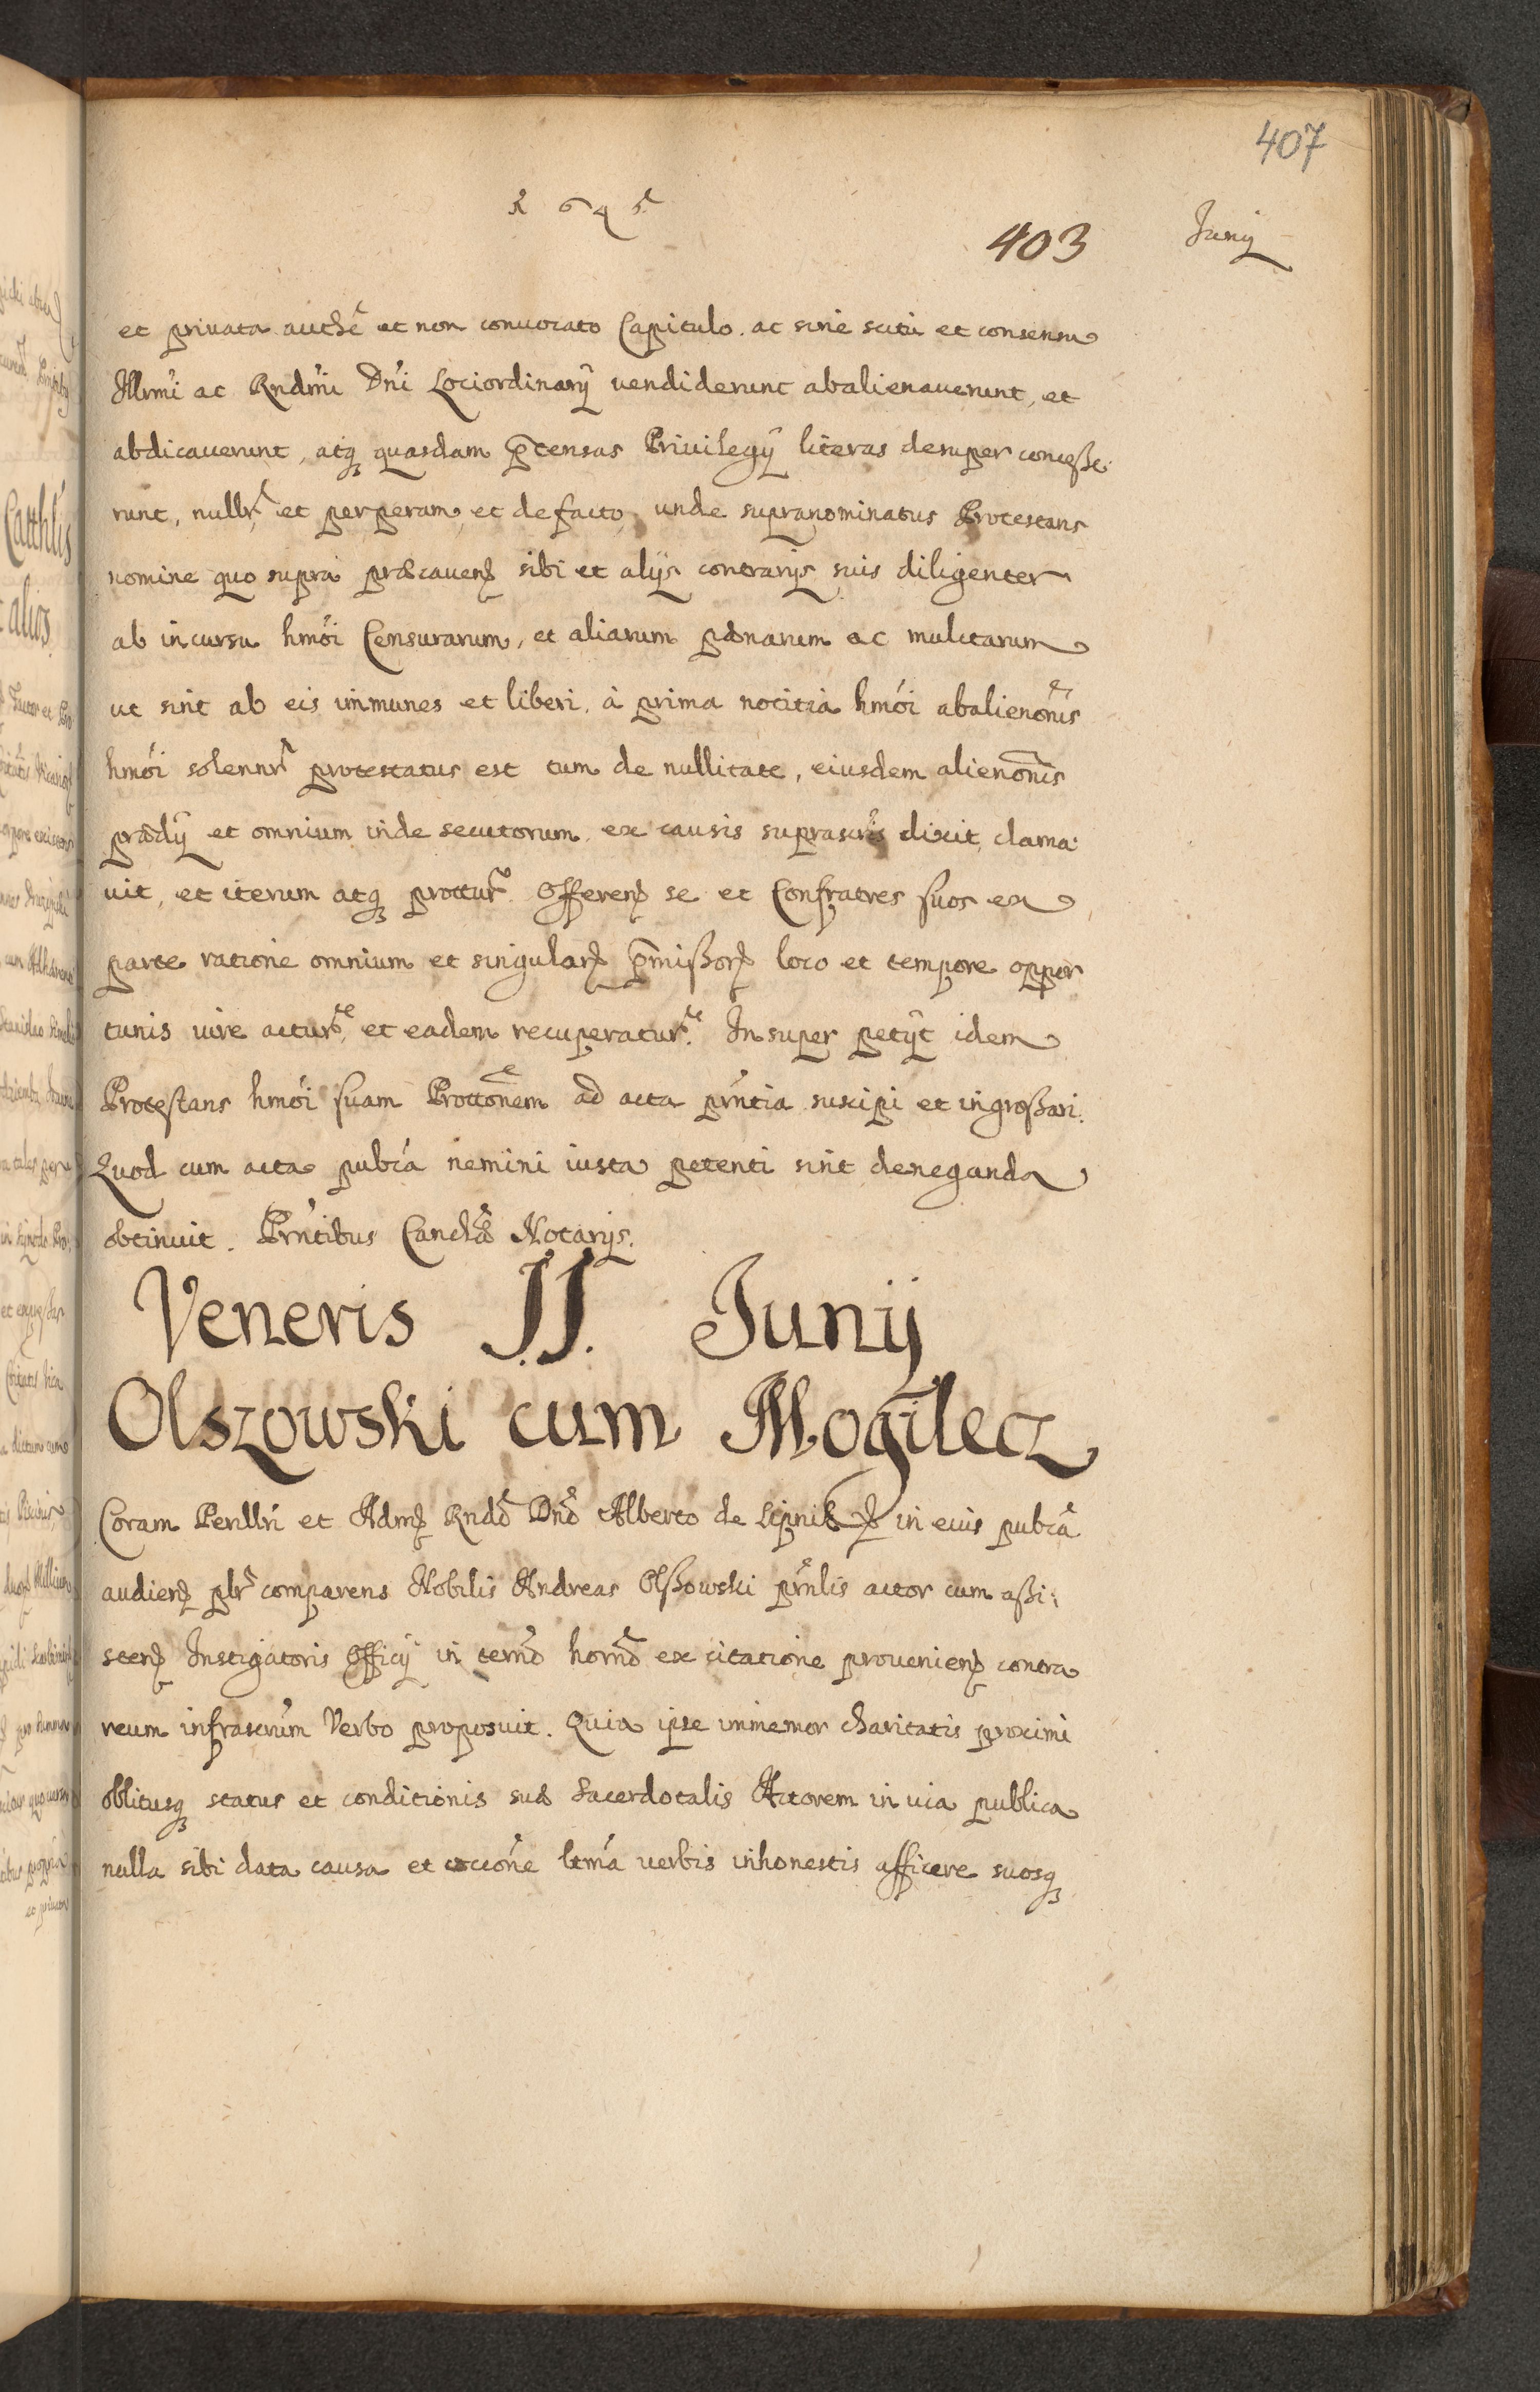 407
1645
403
Junij
et priuata authē et non conuocato Capitulo. ac sine scitu et consensu
Illrmi ac Rndmi Dni Lociordinarij uendiderunt abalienauerunt, et
abdicauerunt, atq quasdam ptensas Priuilegij literas desuper concesse
runt, nullr et perperam et de facto, unde supranominatus Protestans
nomine quo supra præcauen sibi et alijs contrarijs suis diligenter
ab incursu hmoi Censurarum, et aliarum pænarum ac mulctarum
ut sint ab eis immunes et liberi. à prima notitia hmoi abalienonis
hmoi solennr protestatus est tum de nullitate, eiusdem alienonis
prædij et omnium inde secutorum ex causis suprascris dixit, clama
uit, et iterum atq prottur. Offeren se et Confratres suos ex
parte ratione omnium et singular pmissor loco et tempore oppor
tunis iure actur, et eadem recuperatur. Insuper petijt idem
Protestans hmoi suam Prottonem ad acta prntia suscipi et ingrossari.
Quod cum acta pubca nemini iusta petenti sint deneganda
obtinuit. Prntibus Cancha Notarijs.
Veneris II. Junij
Olszowski cum Mogilecz
Coram Perillri et Adm Rndo Dno Alberto de Lipnik in eius pubca
audien plr comparens Nobilis Andreas Olszowski prnlis actor cum assi
sten Instigatoris Officij in termo horno ex citatione prouenien contra
reum infrascrum Verbo proposuit. Quia ipse immemor charitatis proximi
oblitusq status et conditionis suæ Sacerdotalis Actorem in uia publica
nulla sibi data causa et occione ltma uerbis inhonestis afficere suosq